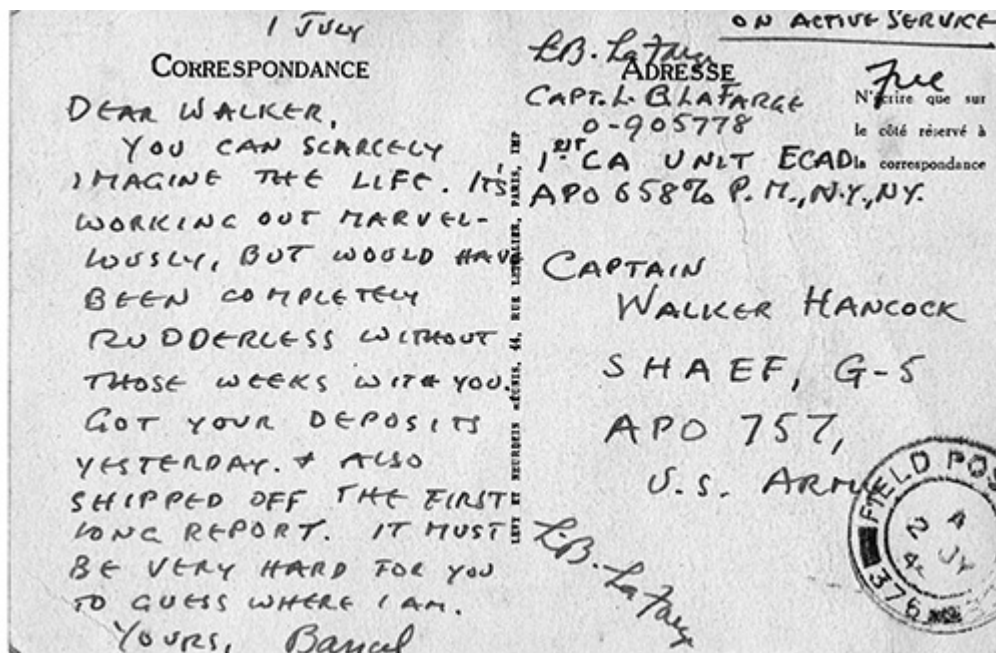 1 JULY
CORRESPONDANCE
DEAR WALKER,
YOU CAN SCARCELY
IMAGINE THE LIFE. ITS
WORKING OUT MARVEL-
LOUSLY, BUT WOULD HAVE
BEEN COMPLETELY
RUDDERLESS WITHOUT
THOSE WEEKS WITH YOU.
GOT YOUR DEPOSITS
YESTERDAY. & ALSO
SHIPPED OFF THE FIRST
LONG REPORT. IT MUST
BE VERY HARD FOR YOU
TO GUESS WHERE I AM.
YOURS, Bancel
LEVY ET NEURDEIN RÉUNIS, 44, RUE LETELLIER, PARIS, IMP
ON ACTIVE SERVICE
L.B. LaFarge
ADRESSE
Free
CAPT. L. B LAFARGE
O-905778
1ST CA UNIT ECAD
APO 658 % P.M., N.Y., NY.
N'écrire que sur
le côté réservé à
la correspondance
CAPTAIN
WALKER HANCOCK
SHAEF, G-5
APO 757,
U.S. ARMY
L.B. LaFarge
FIELD POS
4
2 JY
4
376